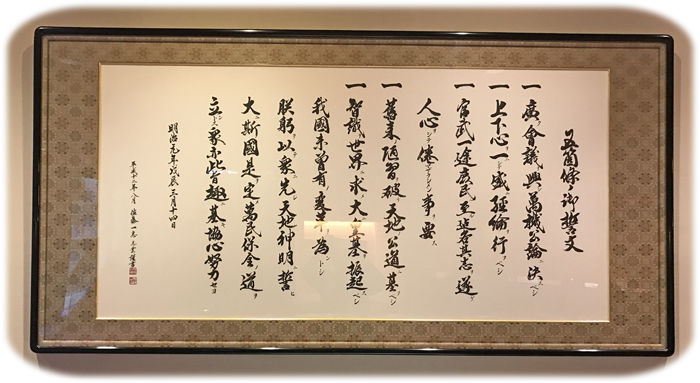 五箇條ノ御誓文
一 廣ク會議ヲ興シ萬機公論ニ決スベシ
一 上下心ヲ一ニシテ盛ニ經綸ヲ行フベシ
一 官武一途庶民ニ至ル迄各其志ヲ遂ケ
人心ヲシテ倦マサラシメン事ヲ要ス
一 舊来ノ陋習ヲ破リ天地ノ公道ニ基クベシ
一 智識ヲ世界ニ求メ大ニ皇基ヲ振起スベシ
我國未曾有ノ変革ヲ為ントシ
朕躬ヲ以テ衆ニ先ンシ天地神明ニ誓ヒ
大ニ斯國是ヲ定メ萬民保全ノ道ヲ
立ントス衆亦此旨趣ニ基キ協心努力セヨ
明治元年戊辰三月十四日
平成十 年八月 佐藤一志 謹書